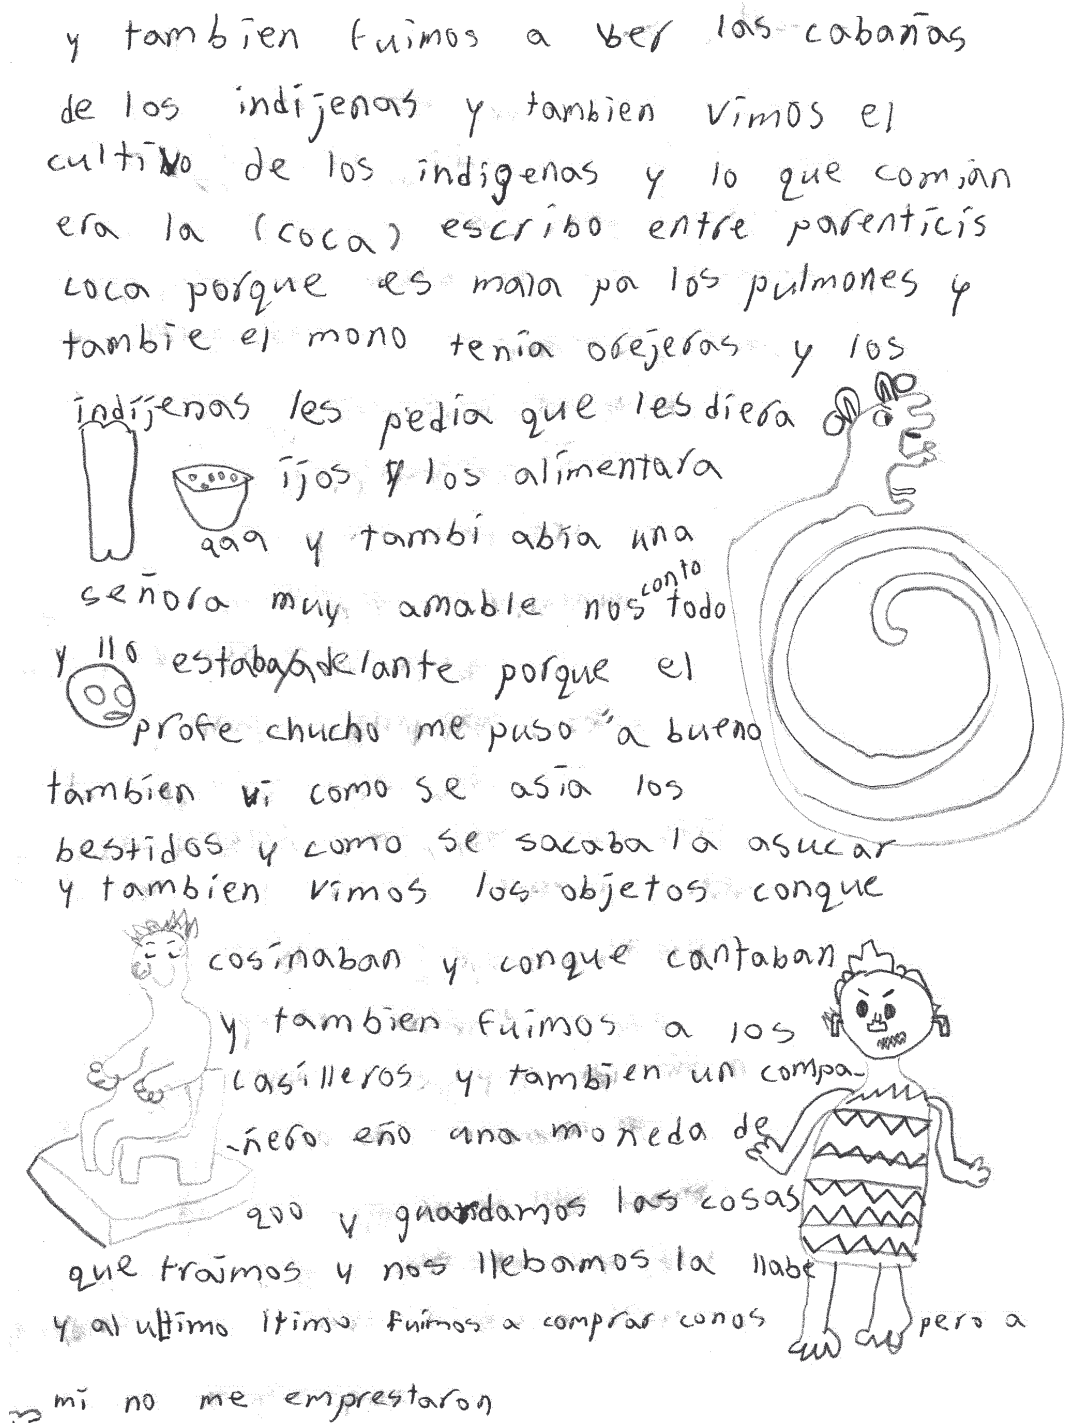 y tambien fuimos a ver las cabañas
de los indijenas y tambien vimos el
cultivo de los indigenas y lo que comian
era la (coca) escribo entre parenticis
coca porque es mala pa los pulmones y
tambie el mono tenia orejeras y los
indijenas les pedia que les diera
ijos y los alimentara
y tambi abia una
señora muy amable nos conto todo
y llo estaba adelante porque el
profe chucho me puso a bueno
tambien vi como se asia los
bestidos y como se sacaba la asucar
y tambien vimos los objetos conque
cosinaban y conque cantaban
y tambien fuimos a los
casilleros y tambien un compa-
-ñero eño una moneda de
200 y guardamos las cosas
que traimos y nos llebamos la llabe
y al ultimo ltimo fuimos a comprar conos pero a
mi no me emprestaron